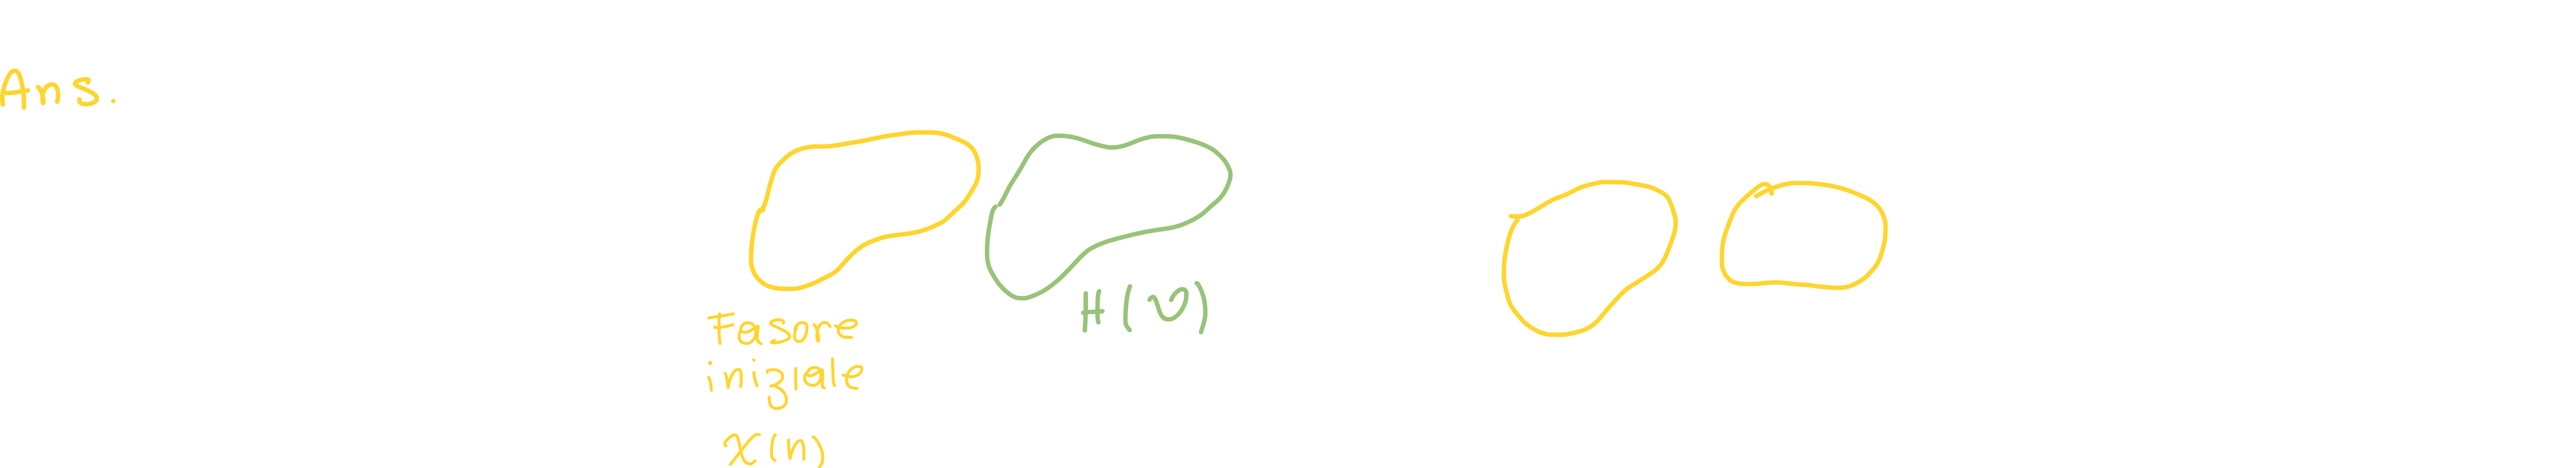 Ans.
Fasore
iniziale
x(n)
H(ν)